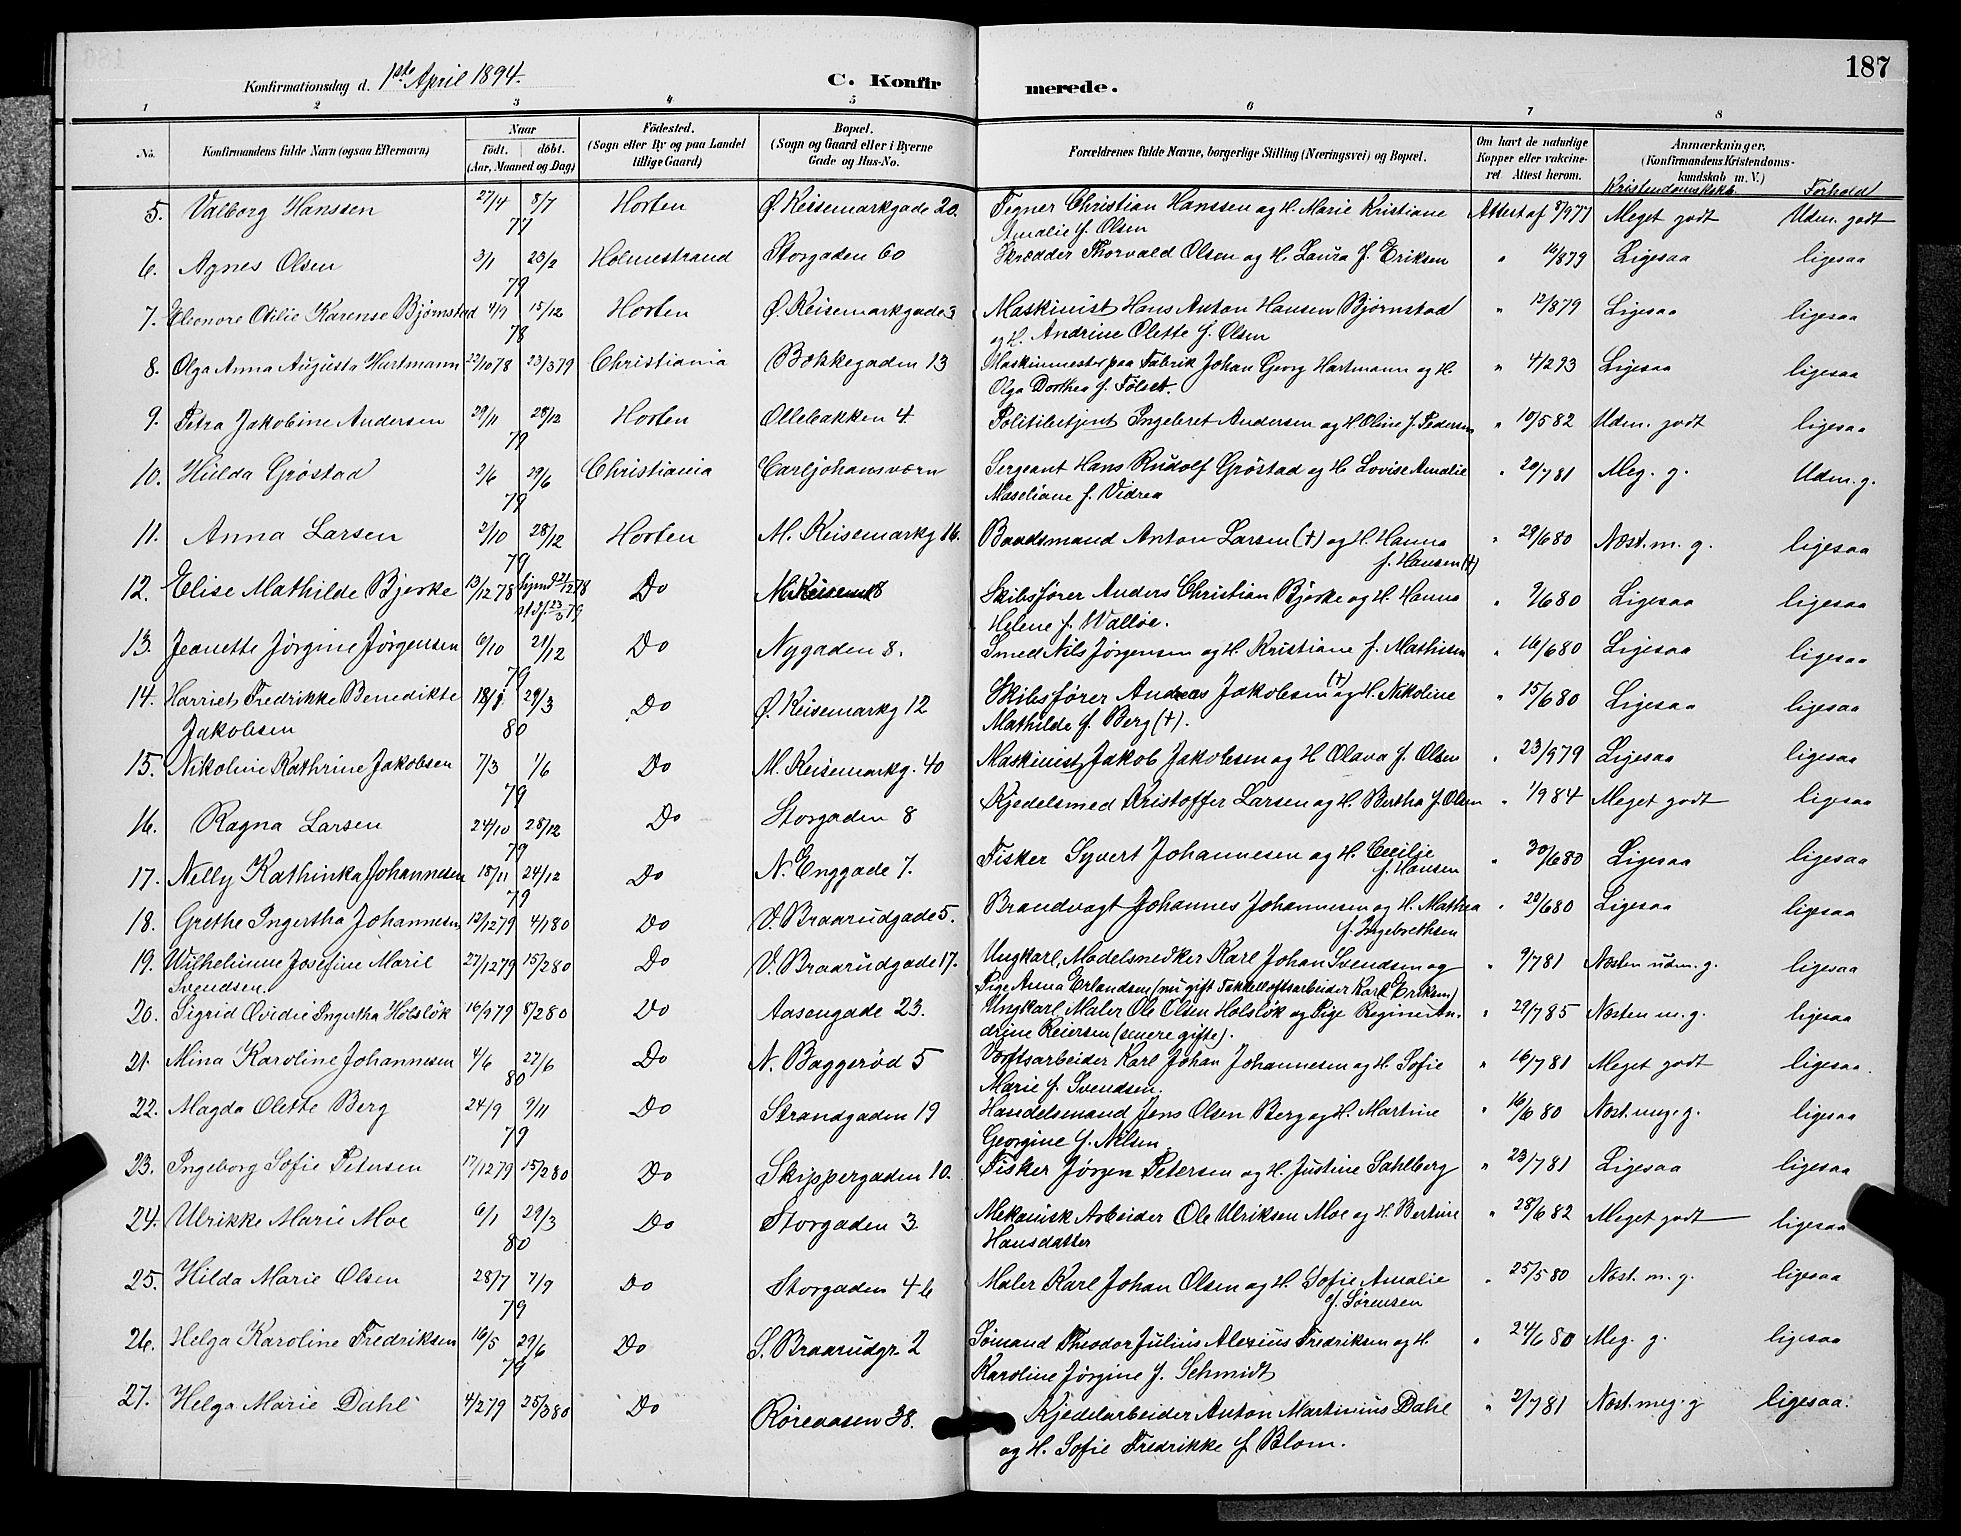 187
Konfirmationsdag d. 1ste April 1894.
C. Konfirmerede.
1 2 3 4 5 6 7 8
No. Konfirmandens fulde Navn (ogsaa Efternavn) Naar født. døbt. (Aar, Maaned og Dag) Födested. (Sogn eller By og paa Landet tillige Gaard) Bopæl. (Sogn og Gaard eller i Byerne Gade og Hus-No. Forældrenes fulde Navne, borgerlige Stilling (Næringsvei) og Bopæl. Om havt de naturlige Kopper eller vakcineret Attest herom. Anmærkninger. (Konfirmandens Kristendomskundskab m. V.)
Kristendomskskb. Forhold
5. Valborg Hanssen 27/4 8/7 77 Horten Ø. Keisemarkgade 20. Tegner Christian Hanssen og H. Marie Kristiane Attest af 8/9 77 Meget godt Udm. godt
Amalie f. Olsen
6. Agnes Olsen 3/1 23/2 79 Holmestrand Storgaden 60 Skrædder Thorvald Olsen og H. Laura f. Eriksen " 16/8 79 Ligesaa ligesaa
7. Eleonore Otilie Karense Bjørnstad 4/9 15/12 78 Horten Ø. Keisemarkgade 3 Maskinist Hans Anton Hansen Bjørnstad " 12/8 79 Ligesaa ligesaa
og H. Andrine Olette f. Olsen
8. Olga Anna Augusta Hartmann 22/10 78 23/3 79 Christiania Bakkegaden 13 Maskinmester paa Fabrik Johan Georg Hartmann og H. " 4/2 93 Ligesaa ligesaa
Olga Dorthea f. Følset.
9. Petra Jakobine Andersen 29/11 28/12 79 Horten Ollebakken 4 Politibetjent Ingebret Andersen og H. Oline f. Pedersen " 10/5 82 Udm. godt ligesaa
10. Hilda Grøstad 2/6 29/6 79 Christiania Carljohansværn Sergeant Hans Rudolf Grøstad og H. Lovise Amalie " 20/7 81 Meg. g. Udm. g.
Maseliane f. Vidrea
11. Anna Larsen 2/10 28/12 79 Horten M. Keisemarkg 16. Baadsmand Anton Larsen (+) og H. Hanna " 29/6 80 Næst. m. g. ligesaa
f. Hansen (+)
12. Elise Mathilde Bjerke 13/12 78 hjemd. 21/12 78 st. f. 23/3 79 Do M. Keisemk 8 Skibsfører Anders Christian Bjerke og H. Hanna " 9/6 80 Ligesaa ligesaa
Helene f. Walløe.
13. Jeanette Jørgine Jørgensen 6/10 21/12 79 Do Nygaden 8. Smed Nils Jørgensen og H. Kristiane f. Mathisen " 16/6 80 Ligesaa ligesaa
14. Harriet Fredrikke Benedikte 18/1 29/3 80 Do Ø. Keisemarkg 12 Skibsfører Andreas Jakobsen (+) og H. Nikoline " 15/6 80 Ligesaa ligesaa
Jakobsen Mathilde f. Berg (+).
15. Nikoline Kathrine Jakobsen 7/3 1/6 79 Do M. Keisemarkg. 40 Maskinist Jakob Jakobsen og H. Olava f. Olsen " 23/9 79 Ligesaa ligesaa
16. Ragna Larsen 24/10 28/12 79 Do Storgaden 8 Kjedelsmed Kristoffer Larsen og H. Bertha f. Olsen " 1/9 84 Meget godt ligesaa
17. Nelly Kathinka Johannesen 18/11 24/12 79 Do N. Enggade 7. Fisker Syvert Johannesen og H. Cecilie " 30/6 80 Ligesaa ligesaa
f. Hansen
18. Grethe Ingertha Johannesen 12/12 79 4/1 80 Do V. Braarudgade 5. Brandvagt Johannes Johannesen og H. Mathea " 28/6 80 Ligesaa ligesaa
f. Ingebrethsen
19. Wilhelmine Josefine Marie 27/12 79 15/2 80 Do V. Braarudgade 17. Ungkarl, Modelsnedker Karl Johan Svendsen og " 9/7 81 Næsten udm. g. ligesaa
Svendsen. Pige Anna Erlandsen (nu gift Takkelloftsarbeider Karl Eriksen)
20. Sigrid Ovidie Ingertha Holsløk 16/9 79 8/2 80 Do Aasengade 23. Ungkarl, Maler Ole Olsen Holsløk og Pige Regine An- " 29/7 85 Næsten m. g. ligesaa
drine Reiersen (senere gifte).
21. Mina Karoline Johannesen 4/6 27/6 80 Do N. Baggerød 5 Værftsarbeider Karl Johan Johannesen og H. Sofie " 16/7 81 Meget godt ligesaa.
Marie f. Svendsen.
22. Magda Olette Berg 24/9 9/11 79 Do Strandgaden 19 Handelsmand Jens Olsen Berg og H. Martine " 16/6 80 Næst. meg. g. ligesaa
Georgine f. Nilsen
23. Ingeborg Sofie Petersen 17/12 79 15/2 80 Do Skippergaden 10. Fisker Jørgen Petersen og H. Justine Sahlberg " 23/7 81 Ligesaa ligesaa
24. Ulrikke Marie Moe 6/1 29/3 80 Do Storgaden 3 Mekanisk Arbeider Ole Ulriksen Moe og H. Bertine " 28/6 82 Meget godt ligesaa
Hansdatter
25. Hilda Marie Olsen 28/7 7/9 79 Do Storgaden 46 Maler Karl Johan Olsen og H. Sofie Amalie " 25/5 80 Næst. m. g. ligesaa
f. Sørensen
26. Helga Karoline Fredriksen 16/5 29/6 79 Do S. Braarudgr. 2 Sømand Theodor Julius Alexius Fredriksen og H. " 24/6 80 Meg. g. ligesaa
Karoline Jørgine f. Schmidt
27. Helga Marie Dahl 4/2 79 25/3 80 Do Røreaasen 38. Kjedelarbeider Anton Martinius Dahl " 2/7 81 Næst. meg. g ligesaa.
og H. Sofie Fredrikke f Blom.